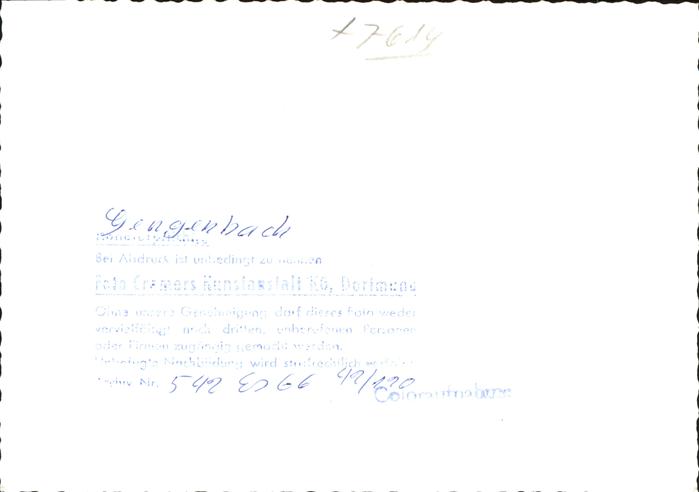 +7614
Gengenbach
Bei Abdruck ist unbedingt zu nennen
Foto Cramers Kunstanstalt KG, Dortmund
Ohne unsere Genehmigung darf dieses Foto weder
vervielfältigt noch dritten, unberufenen Personen
oder Firmen zugängig gemacht werden.
Unbefugte Nachbildung wird strafrechtlich verfolgt
Archiv Nr. 542 Eo 66 42/120